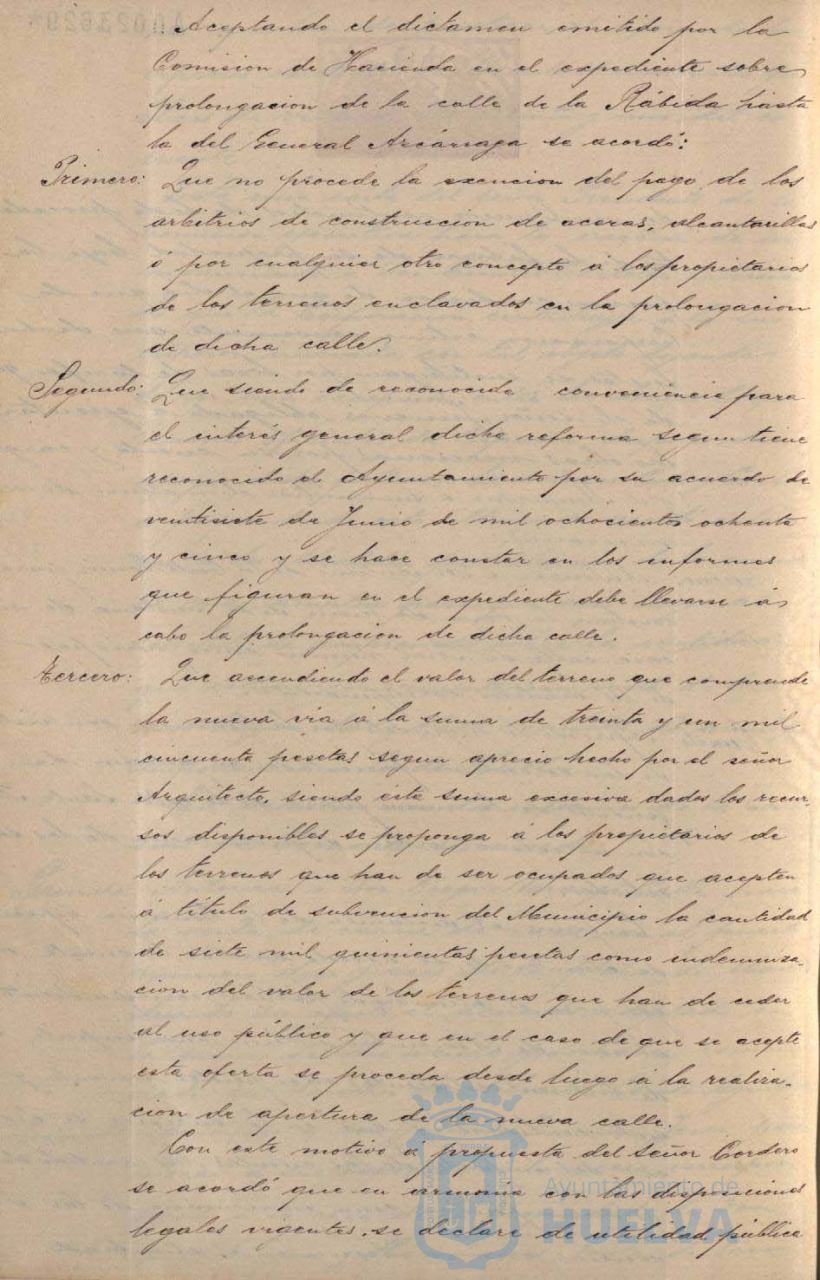 Aceptando el dictamen emitido por la
Comision de Hacienda en el expediente sobre
prolongacion de la calle de la Rábida hasta
la del General Azcárraga se acordó:
Primero: Que no procede la exencion del pago de los
arbitrios de construccion de aceras, alcantarillas
ó por cualquier otro concepto á los propietarios
de los terrenos enclavados en la prolongacion
de dicha calle.
Segundo: Que siendo de reconocida conveniencia para
el interés general dicha reforma segun tiene
reconocido el Ayuntamiento por su acuerdo de
ventisiete de Junio de mil ochocientos ochenta
y cinco y se hace constar en los informes
que figuran en el expediente debe llevarse á
cabo la prolongacion de dicha calle.
Tercero: Que ascendiendo el valor del terreno que comprende
la nueva via á la suma de treinta y un mil
cincuenta pesetas segun aprecio hecho por el señor
Arquitecto, siendo esta suma excesiva dados los recur-
sos disponibles se proponga á los propietarios de
los terrenos que han de ser ocupados que acepten
á título de subvencion del Municipio la cantidad
de siete mil quinientas pesetas como indemniza-
cion del valor de los terrenos que han de ceder
al uso público y que en el caso de que se acepte
esta oferta se proceda desde luego á la realiza-
cion de apertura de la nueva calle.
Con este motivo á propuesta del Señor Cordero
se acordó que en armonia con las disposiciones
legales vigentes, se declare de utilidad pública
Ayuntamiento de
HUELVA